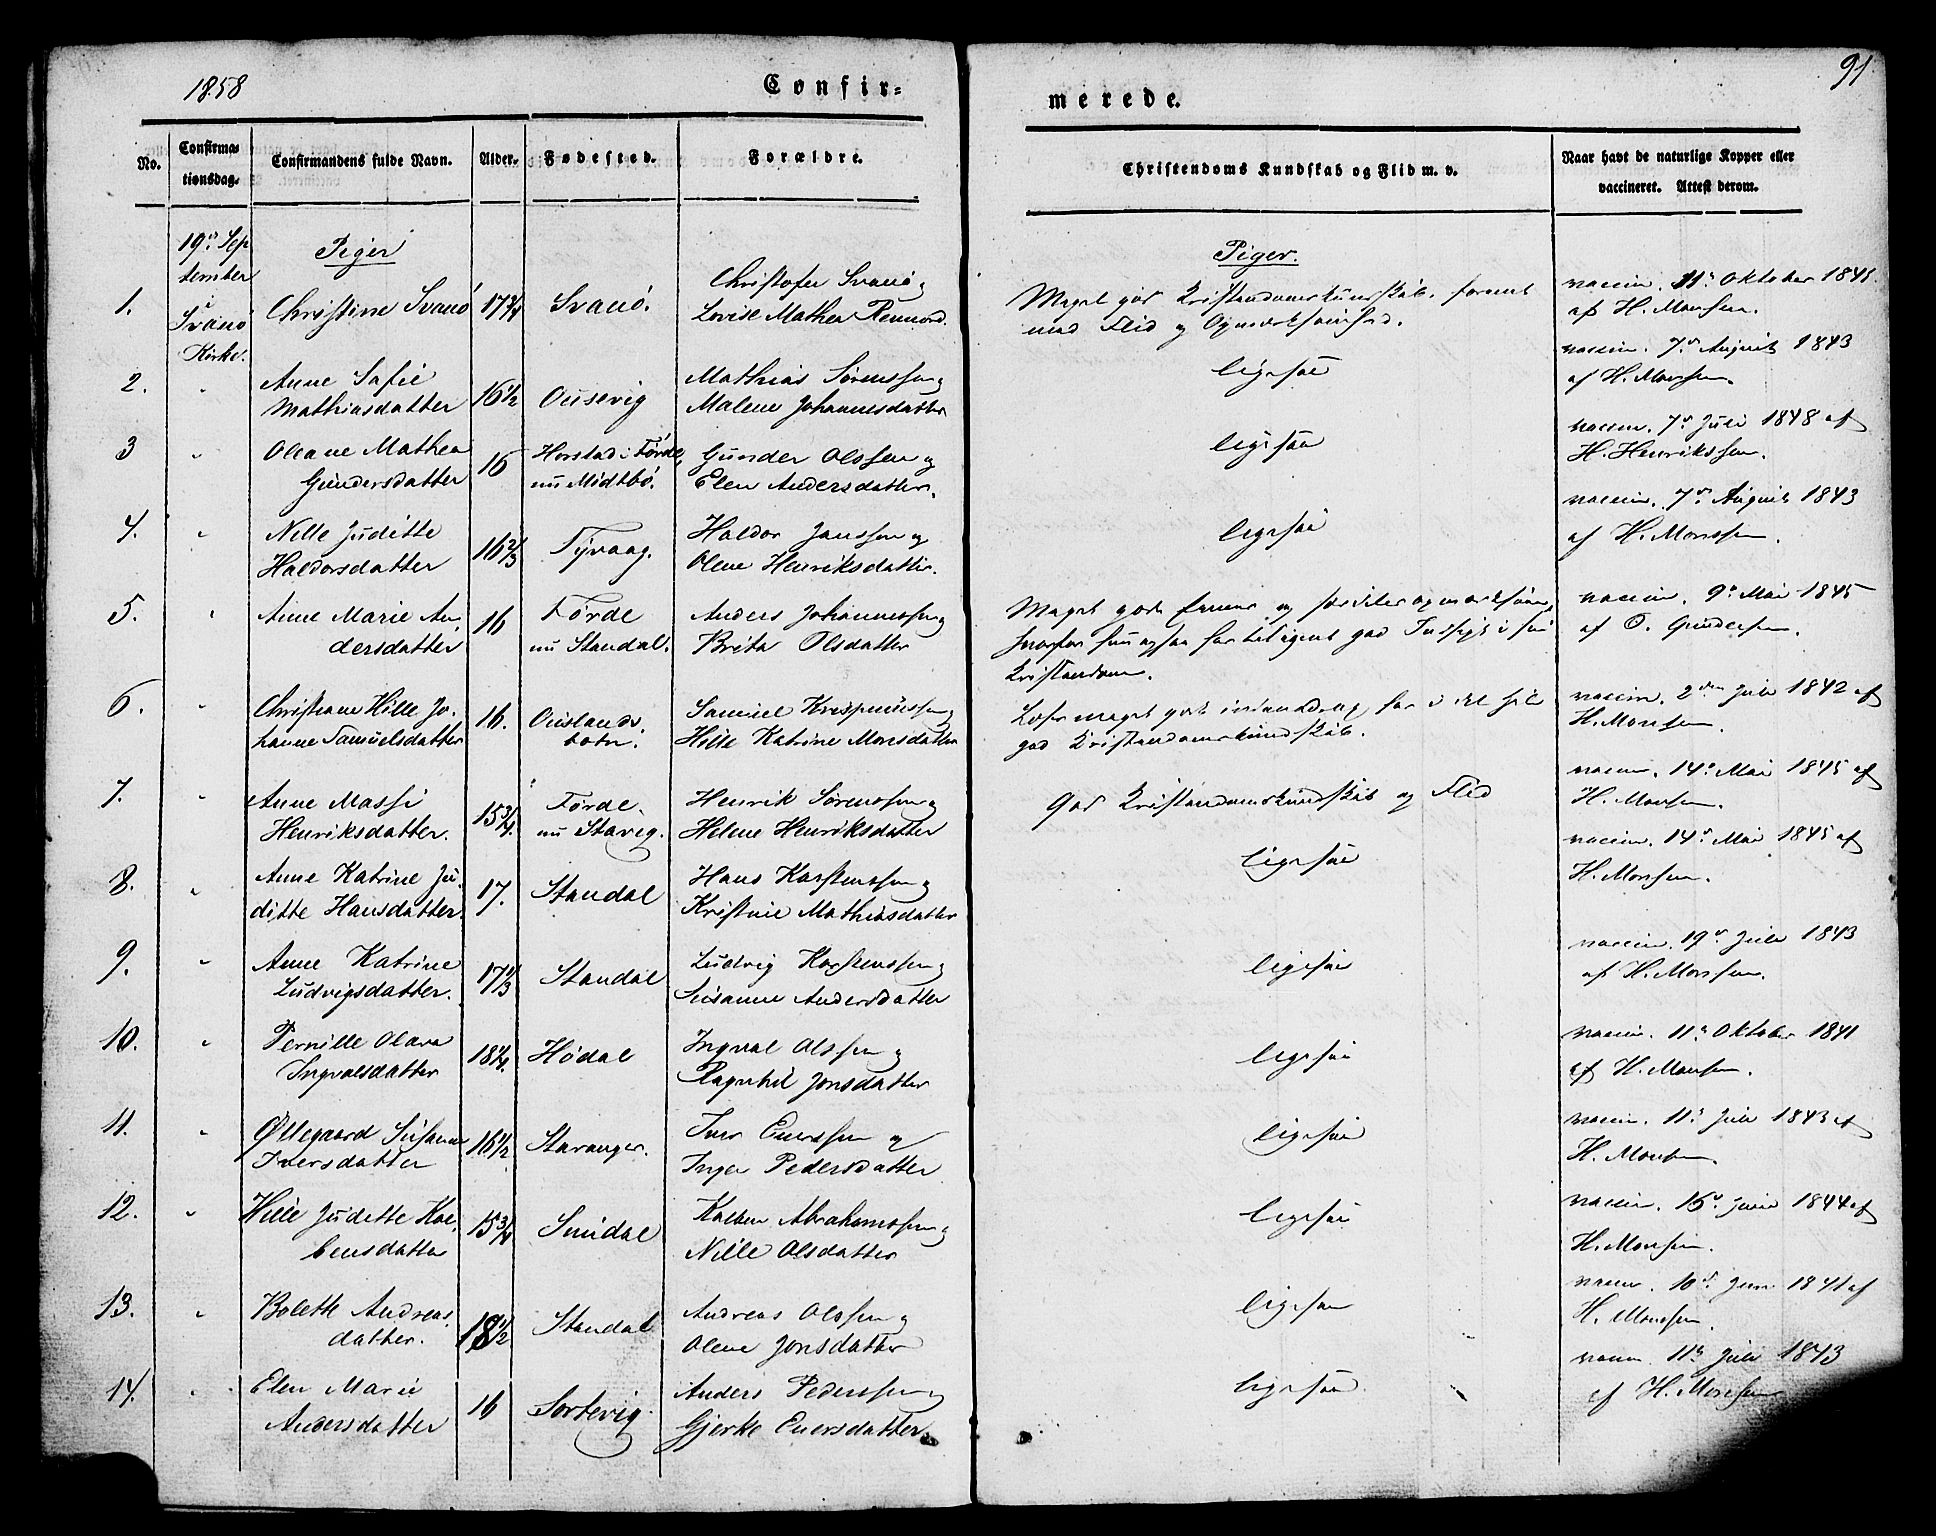 1858
Confir=
merede.
91
No.
Confirma=
tionsdag.
Confirmandens fulde Navn.
Alder.
Fødested.
Forældre.
Christendoms Kundskab og Flid m. v.
Naar havt de naturlige Kopper eller
vaccineret. Attest derom.
19de Sep
tember
i
Svanö
Kirke.
Piger
Piger.
1. Christine Svanö 17 3/4 Svanö.
Christofer Svanö og
Lovise Mathea Rennord.
Meget god Kristendomskundskab, forenet
med Flid og Opmærksomhed.
vaccin. 11te Oktober 1841
af H. Monsen.
2. "
Anne Sofie
Mathiasdatter
16 1/2 Ousevig
Mathias Sørenssen og
Malene Johannesdatter
ligesaa
vaccin. 7de August 1843
af H. Monssen.
3 "
Oleane Mathea
Gundersdatter
15
Horstad i Førde,
nu Midtbö.
Gunder Olssen og
Elen Andersdatter.
ligesaa
vaccin. 7de Juli 1848 af
H. Henrikssen.
4. "
Nille Juditte
Haldorsdatter
16 2/3 Tyvaag.
Haldor Janssen og
Olene Henriksdatter.
ligesaa
vaccin. 7de August 1843
af H. Monssen.
5. "
Anne Marie An
dersdatter
16
Førde
nu Standal.
Anders Johannessen og
Brita Olsdatter
Meget gode Evner og
god Indsigt i sin
Kristendom.
vaccin. 9de Mai 1845
af O. Gundersen.
6. "
Christiane Hille Jo,
hanne Samuelsdatter
16.
Ouslands,
botn.
Samuel Krispinussen og
Hille Katrine Monsdatter
Læser meget godt indenad, har i det hele
god Kristendomskundskab.
vaccin. 2den Juli 1842 af
H. Monsen.
7. "
Anne Massi
Henriksdatter.
15 3/4.
Førde.
nu Stavig.
Henrik Sørenssen og
Helene Henriksdatter
God Kristendomskundskab og Flid
vaccin. 14de Mai 1845 af
H. Monsen.
8. "
Anne Katrine Ju,
ditte Hansdatter.
17. Standal
Hans Karstenssen og
Kristine Mathiasdatter
ligesaa
vaccin. 14de Mai 1845 af
H. Monsen.
9. "
Anne Katrine
Ludvigsdatter.
17 1/3 Standal
Ludvig Karstenssen og
Susanne Andersdatter
ligesaa
vaccin. 19de Juli 1843
af H. Monsen.
10. "
Pernille Olava
Ingvalsdatter
18 1/4. Hødal
Ingval Olssen og
Ragnhil Jonsdatter
ligesaa
vaccin. 11te Oktober 1841
af H. Monsen.
11. "
Øllegaard Susanne
Iversdatter
16 1/2 Stavanger.
Iver Enerssen og
Inger Pedersdatter
ligesaa
vaccin. 11te Juli 1843 af
H. Monsen.
12. "
Hille Juditte Kol,
bensdatter
15 3/4 Smidal
Kolben Abrahamssen og
Nille Olsdatter
ligesaa
vaccin. 15de Juni 1844 af
H. Monsen.
13. "
Bolette Andreas,
datter.
18 1/2 Standal
Andreas Olssen og
Olene Jonsdatter
ligesaa
vaccin. 10de Juni 1841 af
H. Monsen.
14. "
Elen Marie
Andersdatter
16 Sortevig.
Anders Pederssen og
Gjerke Enersdatter.
ligesaa.
vaccin. 11te Juli 1843
af H. Monsen